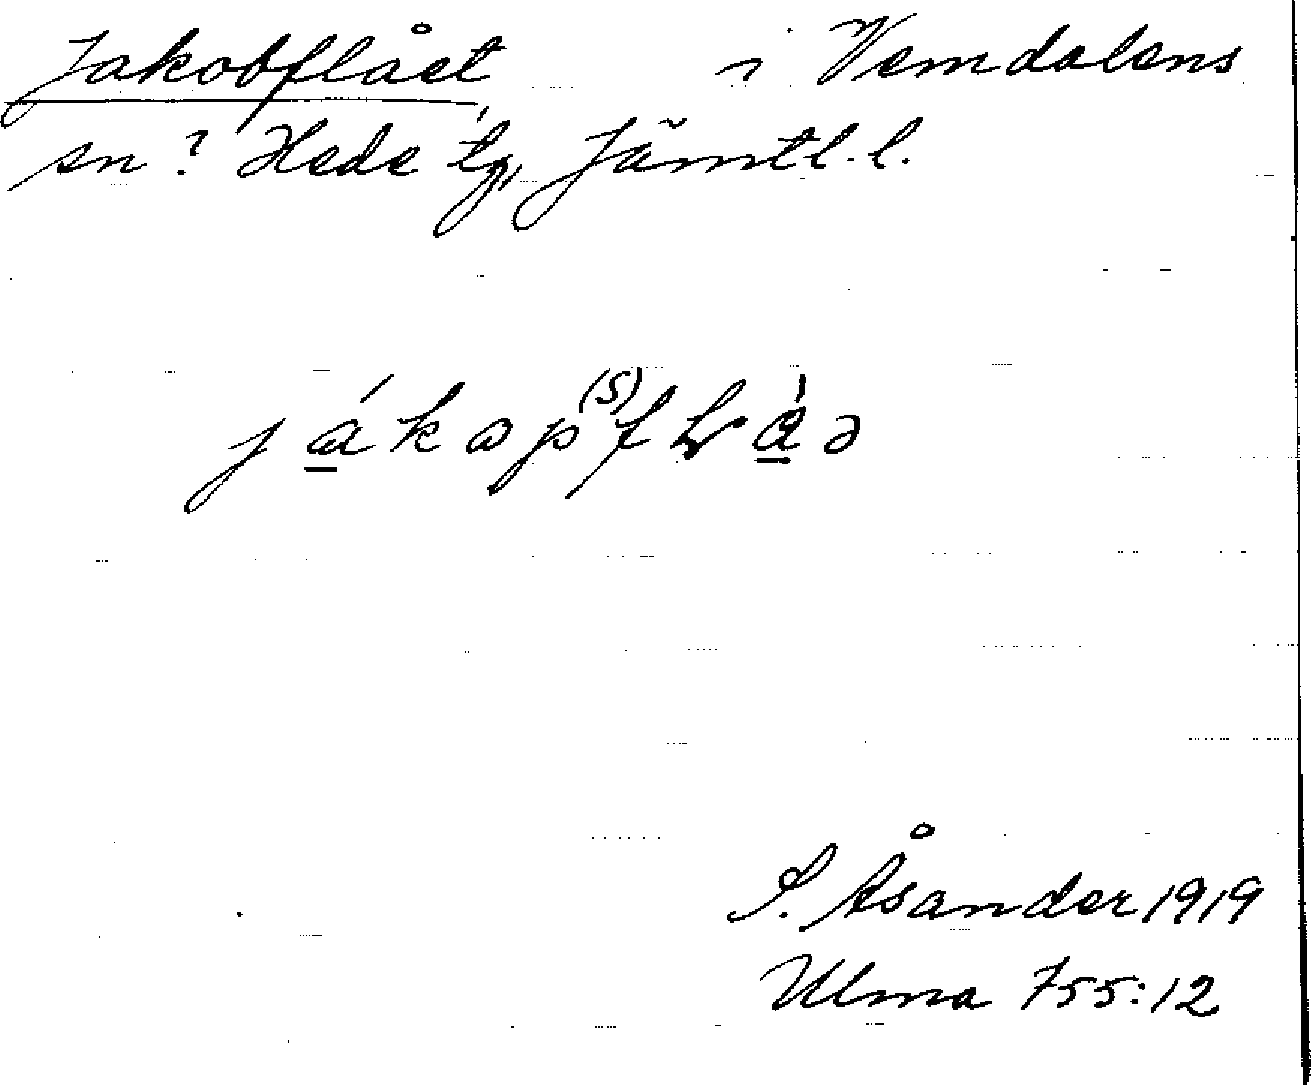 Jakobflået i Vemdalens
sn? Hede tg, Jämtl. l.
S. Åsander 1919
Ulma 755:12